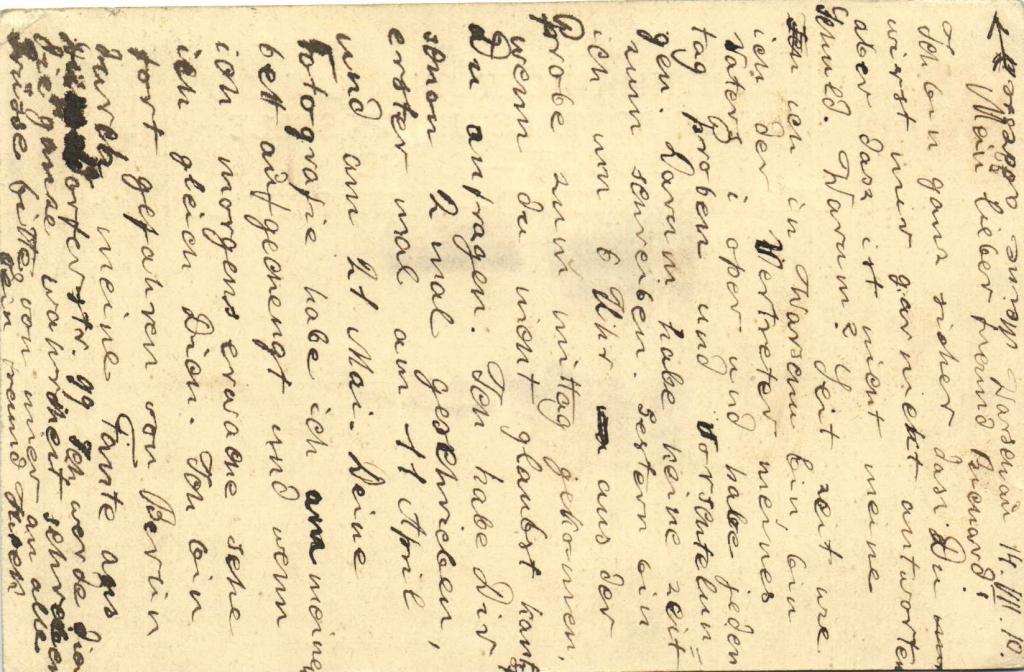 Warschau 14.VIII.10.
Mein lieber Freund Richard!
Ich bin ganz sicher dass Du
wirst mir garnicht antworten
aber dass ist nicht meine
Schuld. Warum? Seit zeit wie
ich in Warschau bin, bin
ich der Vertreter meines
Vaters i oper und habe jeden
tag proben und vorschtelun=
gen. Darum habe keine zeit
zum schreiben. Gestern bin
ich um 6 Uhr aus der
Probe zum mittag gekommen,
wenn du nicht glaubst kanst
Du anfragen. Ich habe Dir
schon 2 mal geschrieben,
erster mal am 11 April
und am 21 Mai. Deine
Fotografie habe ich am meine
bett aufgehengt und wenn
ich morgens erwache sehe
ich gleich Dich. Ich bin
fort gefahren von Berlin
durch meine Tante aus
99 Ich werde Dier
die ganze wahrheit schreiben
Grüsse bitte von mier an alle
Dein Freund